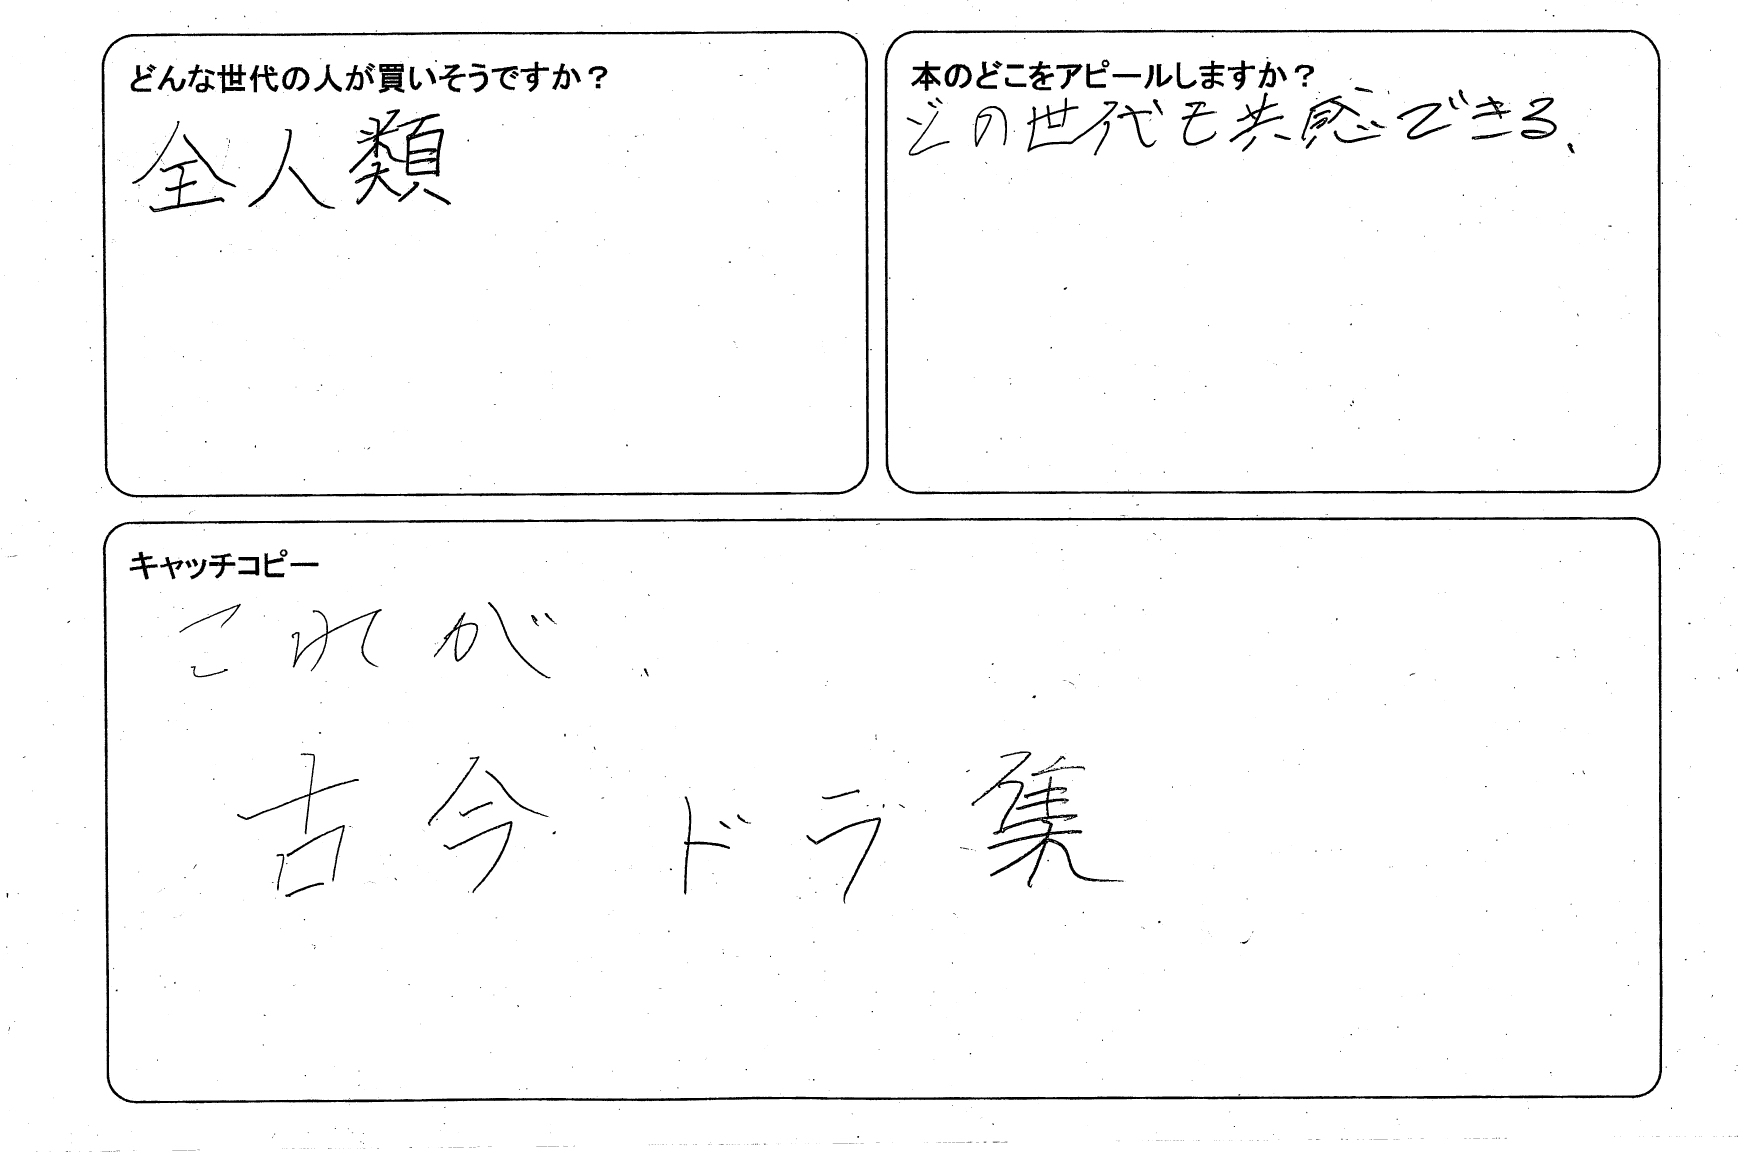 どんな世代の人が買いそうですか？
全人類
本のどこをアピールしますか？
どの世代も共感できる、
キャッチコピー
これが
古今ドラ集